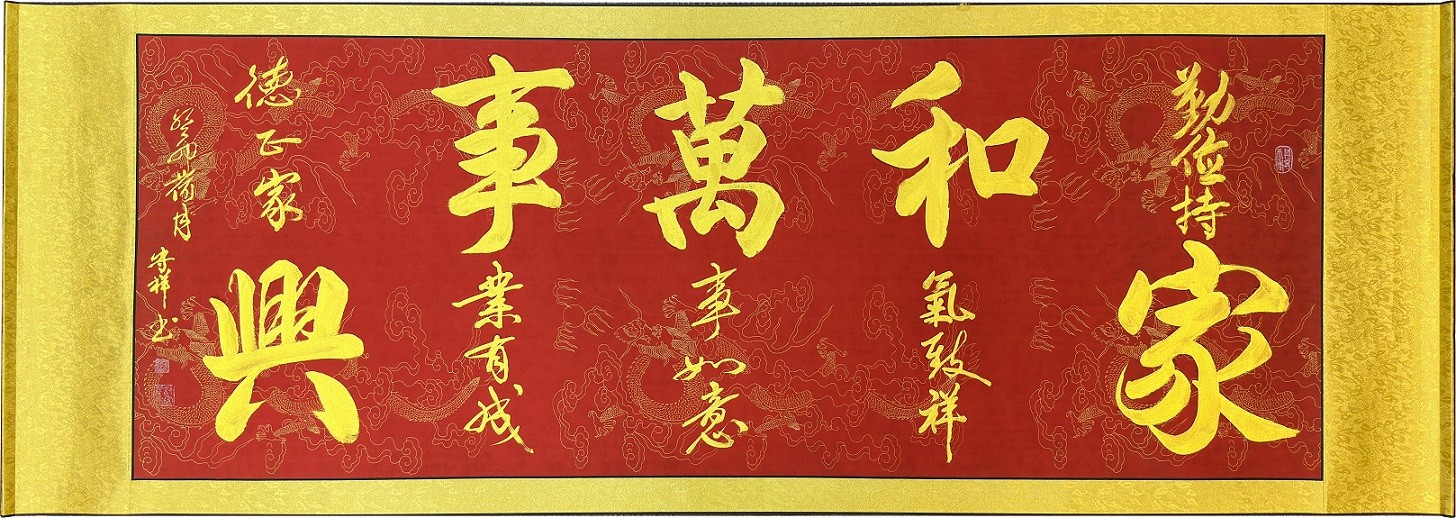 勤俭持家
和氣致祥
萬事如意
事業有成
德正家興
癸卯荷月
祥书